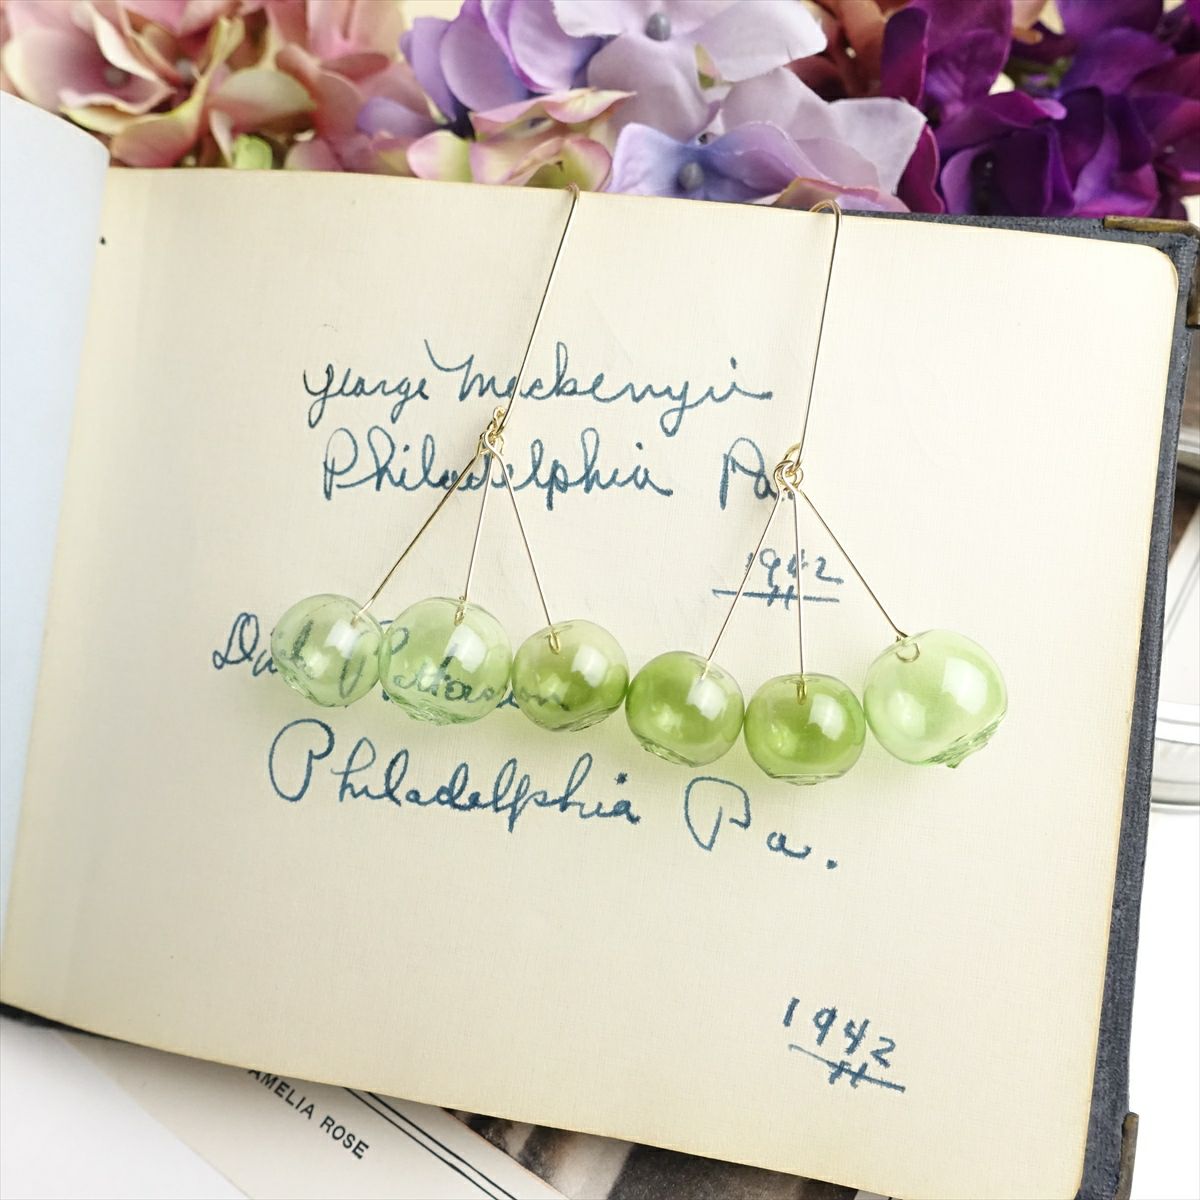 George Mackenyie
Philadelphia Pa.
1942
Philadelphia Pa.
1942
AMELIA ROSE